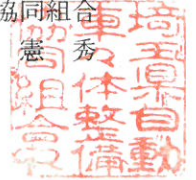 協同組合
憲秀
埼玉県自動
車々体整備
協同組合